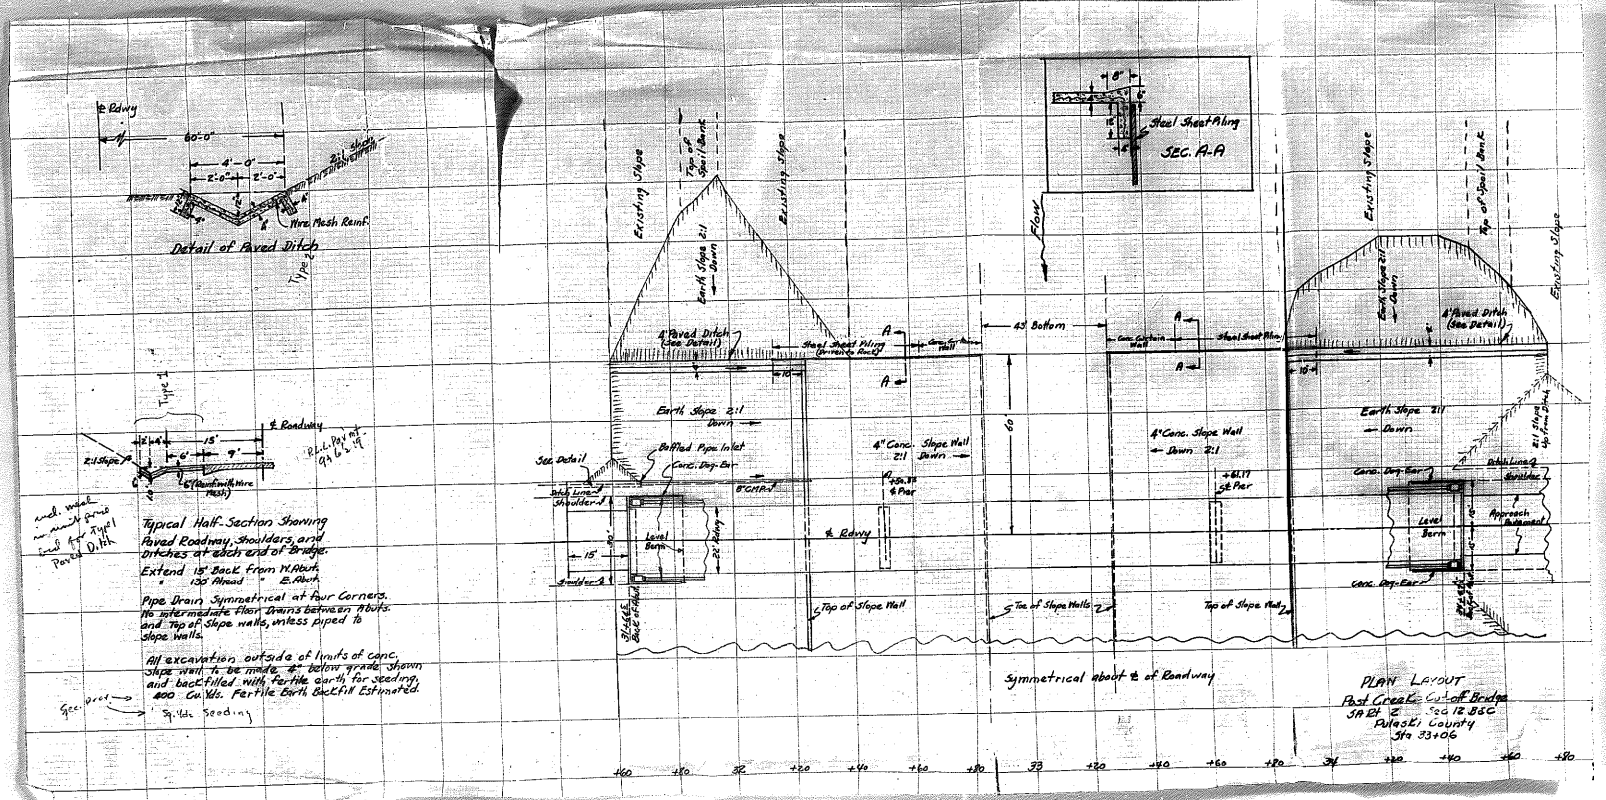 ℄ Rdwy
60'-0"
4'-0"
2'-0" 2'-0"
2:1 Slope
12"
4"
Wire Mesh Reinf.
Detail of Paved Ditch
Type 2
Type 1
℄ Roadway
2' 4' 15'
6' 9'
2:1 Slope
6" (Reinf. with Wire
Mesh)
incl. mesh
unit price
bid for Type 1
Paved Ditch
Typical Half-Section Showing
Paved Roadway, Shoulders, and
Ditches at each end of Bridge.
Extend 15' Back from W. Abut.
" 130' Ahead " E. Abut.
Pipe Drain Symmetrical at four Corners.
No intermediate floor Drains between Abuts.
and Top of Slope walls, unless piped to
slope walls.
All excavation outside of limits of conc.
slope wall to be made 4" below grade shown
and backfilled with fertile earth for seeding,
400 Cu. Yds. Fertile Earth Backfill Estimated.
Sq. Yds. Seeding
Existing Slope
Top of
Spoil Bank
Existing Slope
Earth Slope 2:1
Down
4' Paved Ditch
(See Detail)
Steel Sheet Piling
(Driven to Rock)
Conc. Curtain
Wall
A
A
10'
Earth Slope 2:1
Down
Baffled Pipe Inlet
Conc. Dog-Ear
See Detail
Ditch Line
Shoulder
8" CMP
Level
Berm
30'
22' Rdwy
15'
Shoulder
31+66.5
Back of Abut.
4" Conc. Slope Wall
2:1 Down
℄ Pier
℄ Rdwy
Top of Slope Wall
Toe of Slope Walls
Top of Slope Wall
8"
6"
12"
Steel Sheet Piling
SEC. A-A
Flow
43' Bottom
60'
Conc. Curtain
Wall
Steel Sheet Piling
A
A
10'
4" Conc. Slope Wall
Down 2:1
+61.17
℄ Pier
Existing Slope
Top of Spoil Bank
Existing Slope
Earth Slope 2:1
Down
4' Paved Ditch
(See Detail)
Earth Slope 2:1
Down
2:1 Slope
Up from Ditch
Conc. Dog-Ear
Ditch Line
Shoulder
Level
Berm
Approach
Pavement
Conc. Dog-Ear
Symmetrical about ℄ of Roadway
PLAN LAYOUT
Post Creek Cut-off Bridge
SA Rt 2 Sec 12 B&C
Pulaski County
Sta 33+06
+60 +80 32 +20 +40 +60 +80 33 +20 +40 +60 +80 34 +20 +40 +60 +80